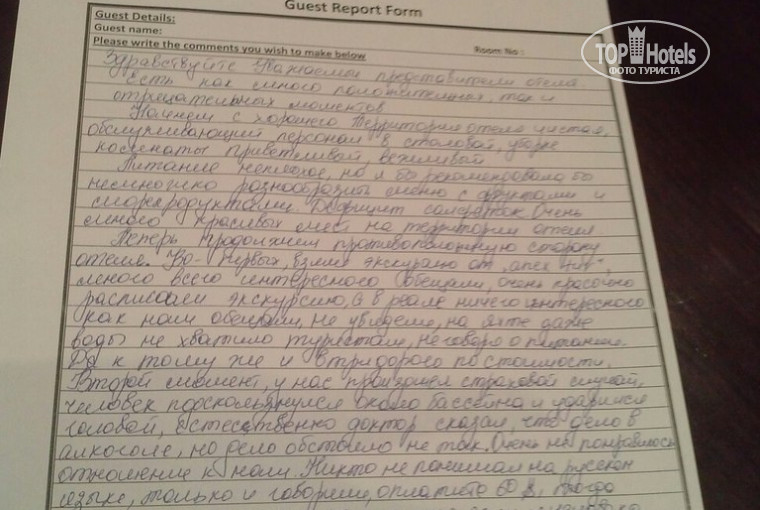 Guest Report Form
TOP Hotels
ФОТО ТУРИСТА
Guest Details:
Guest name:
Please write the comments you wish to make below
Room No :
Здравствуйте Уважаемые представители отеля
Есть как много положительных, так и
отрицательных моментов
Начнем с хорошего территория отеля чистая,
обслуживающий персонал в столовой, уборке
комнаты приветливый, вежливый
Питание неплохое, но я бы рекомендовала бы
немножко разнообразить меню с фруктами и
морепродуктами. Дефицит салфеток. Очень
много красивых мест на территории отеля
Теперь продолжим противоположную сторону
отеля. Во-первых, взяли экскурсию от
много всего интересного обещали, очень красочно
расписали экскурсию, а в реале ничего интересного
как нам обещали, не увидели, на яхте даже
воды не хватило туристам, не говоря о питании.
Да к тому же и втридорого по стоимости.
Второй момент, у нас произошел страховой случай,
человек подскользнулся около бассейна и ударился
головой, естественно доктор сказал, что дело в
алкоголе, но дело обстояло не так. Очень не понравилось
отношение к нам. Никто не понимал на русском
языке, только и говорили, оплатите 60 $, тогда